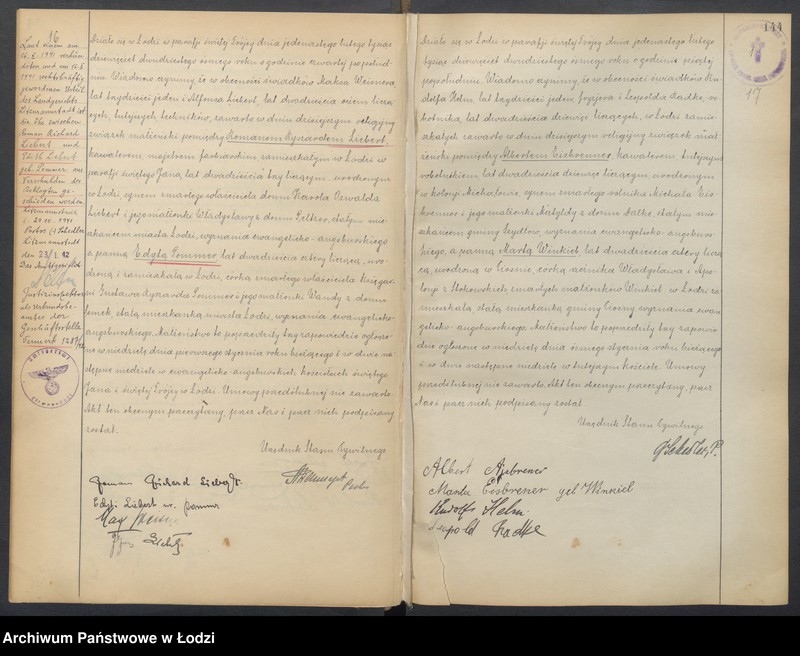 16
Laut dem am
verkün-
deten und am
1941 rechtskräftig
gewordenen Urteil
des Landgerichts
Litzmannstadt ist
die Ehe zwischen
Roman Richard
Liebert und
Edith Liebert
geb. Sommer aus
Verschulden der
Beklagten ge-
schieden worden.
Litzmannstadt
Litzmannstadt
den 23/1. 42
Das Amtsgericht
Justizinspektor
als Urkundsbe-
amter der
Geschäftsstelle
Działo się w Łodzi w parafji świętej Trójcy dnia jedenastego lutego tysiąc
dziewięćset dwudziestego ósmego roku o godzinie czwartej popołud-
niu. Wiadomo czynimy, że w obecności świadków Maksa
lat trzydzieści jeden i Alfonsa Liebert, lat dwadzieścia osiem liczą-
cych, tutejszych techników, zawarto w dniu dzisiejszym religijny
związek małżeński pomiędzy Romanem Ryszardem Liebert,
kawalerem, majstrem farbiarskim, zamieszkałym w Łodzi w
parafji świętego Jana, lat dwadzieścia trzy liczącym, urodzonym
w Łodzi, synem zmarłego właściciela domu Karola Oswalda
Liebert i jego małżonki Władysławy z domu Feltker, stałym mie-
szkańcem miasta Łodzi, wyznania ewangelicko-augsburskiego
a panną Edytą Sommer, lat dwadzieścia cztery liczącą, uro-
dzoną i zamieszkałą w Łodzi, córką zmarłego właściciela księgar-
ni Gustawa Ryszarda Sommer i jego małżonki Wandy z domu
stałą mieszkanką miasta Łodzi, wyznania ewangelicko-
augsburskiego. Małżeństwo to poprzedziły trzy zapowiedzie ogłoszo-
ne w niedzielę dnia pierwszego stycznia roku bieżącego i w dwie na-
stępne niedziele w ewangelicko-augsburskich kościołach świętego
Jana i świętej Trójcy w Łodzi. Umowy przedślubnej nie zawarto.
Akt ten obecnym przeczytany, przez Nas i przez nich podpisany
został.
Urzędnik Stanu Cywilnego
Roman Richard Liebert.
Edyt Liebert ur. Sommer
Max
Liebert
144
17
Działo się w Łodzi w parafji świętej Trójcy dnia jedenastego lutego
tysiąc dziewięćset dwudziestego ósmego roku o godzinie piątej
popołudniu. Wiadomo czynimy, że w obecności świadków Ru-
dolfa Helm, lat trzydzieści jeden, fryzjera i Leopolda Radke, ro-
botnika, lat dwadzieścia dziewięć liczących, w Łodzi zamie-
szkałych zawarto w dniu dzisiejszym religijny związek mał-
żeński pomiędzy Albertem Eisbrenner, kawalerem tutejszym
robotnikiem, lat dwadzieścia dziewięć liczącym, urodzonym
w kolonji Michałowie, synem zmarłego rolnika Michała Eis-
brenner i jego małżonki Matyldy z domu Radke, stałym mie-
szkańcem gminy wyznania ewangelicko-augsbur-
skiego, a panną Martą Winkiel, lat dwadzieścia cztery liczą-
cą, urodzoną w córką Władysława i Apo-
lonji z zmarłych małżonków Winkiel, w Łodzi za-
mieszkałą stałą mieszkanką gminy wyznania ewan-
gelicko-augsburskiego. Małżeństwo to poprzedziły trzy zapowie-
dzie ogłoszone w niedzielę dnia ósmego stycznia roku bieżącego
i w dwie następne niedziele w tutejszym kościele. Umowy
przedślubnej nie zawarto. Akt ten obecnym przeczytany, przez
Nas i przez nich podpisany został.
Urzędnik Stanu Cywilnego
Albert Ajsbrener
Marta Eisbrener geb Winkiel
Rudolf Helm.
Leopold Radke
Archiwum Państwowe w Łodzi